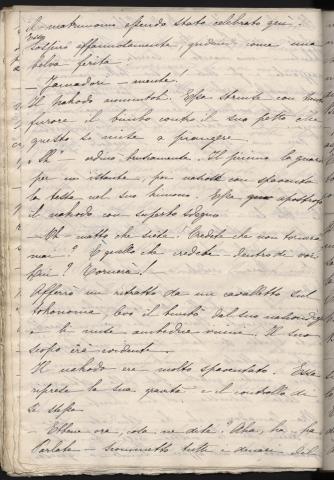 Il matrimonio essendo stato celebrato qui.
Essa
Sospirò affannosamente, quindi come una
belva ferita.
— Yamadori — mente!
Il nakodo ammutolì. Essa strinse con
furore il bimbo contro il suo petto che
questo si mise a piangere.
ordinò brutamente. Il piccino la guardò
per un istante, poi nascose con spavento
la testa nel suo kimono. Essa apostrofò
il nakodo con superbo sdegno
— Oh matto che siete! Credete che non tornerà
mai? E quello che credete dentro di voi
? Tornerà!
Afferrò un ritratto da un cavalletto sul
tokonoma, levò il bimbo dal suo nascondiglio
e li mise ambedue vicini. Il suo
scopo era evidente.
Il nakodo era molto spaventato. Essa
riprese la sua gravità e il controllo di
se stessa.
— Ebbene ora, che ne dite? Aha, ha, ha
Parlate — scommetto tutti i denari del